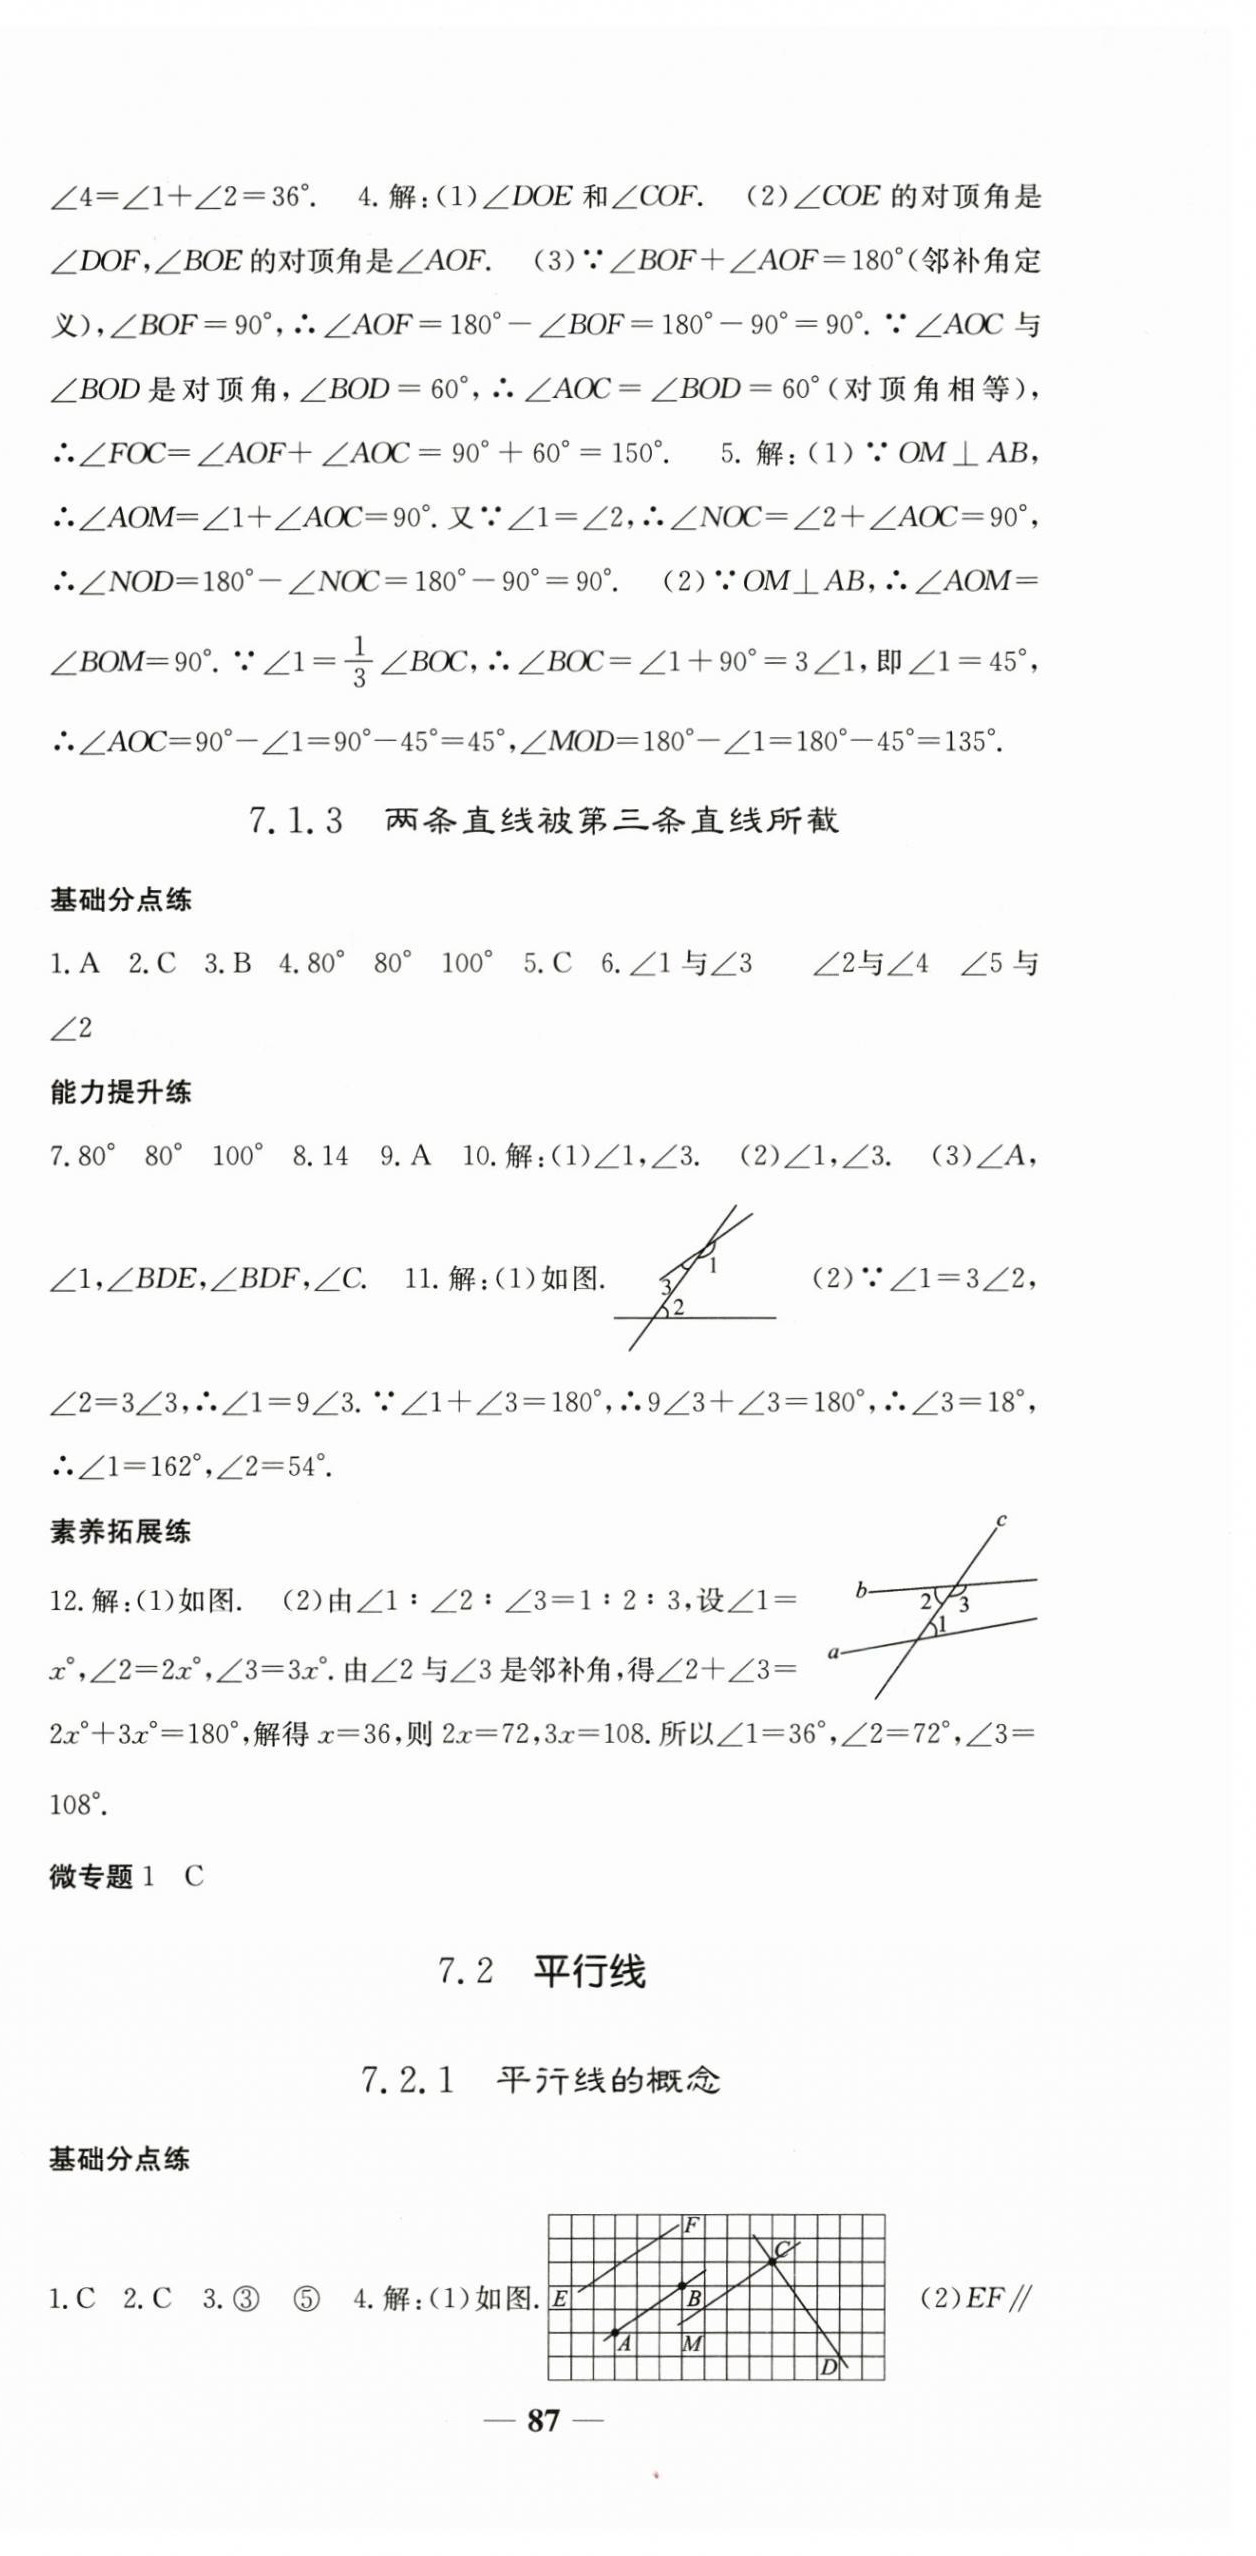 ∠4=∠1+∠2=36°. 4.解:(1)∠DOE 和∠COF. (2)∠COE 的对顶角是
∠DOF,∠BOE 的对顶角是∠AOF. (3)∵∠BOF+∠AOF=180°(邻补角定
义),∠BOF=90°,∴∠AOF=180°-∠BOF=180°-90°=90°.∵∠AOC 与
∠BOD 是对顶角,∠BOD=60°,∴∠AOC=∠BOD=60°(对顶角相等),
∴∠FOC=∠AOF+∠AOC=90°+60°=150°. 5.解:(1)∵OM⊥AB,
∴∠AOM=∠1+∠AOC=90°.又∵∠1=∠2,∴∠NOC=∠2+∠AOC=90°,
∴∠NOD=180°-∠NOC=180°-90°=90°. (2)∵OM⊥AB,∴∠AOM=
∠BOM=90°.∵∠1=1/3∠BOC,∴∠BOC=∠1+90°=3∠1,即∠1=45°,
∴∠AOC=90°-∠1=90°-45°=45°,∠MOD=180°-∠1=180°-45°=135°.
7.1.3 两条直线被第三条直线所截
基础分点练
1.A 2.C 3.B 4.80° 80° 100° 5.C 6.∠1与∠3 ∠2与∠4 ∠5与
∠2
能力提升练
7.80° 80° 100° 8.14 9.A 10.解:(1)∠1,∠3. (2)∠1,∠3. (3)∠A,
∠1,∠BDE,∠BDF,∠C. 11.解:(1)如图. 1 3 2 (2)∵∠1=3∠2,
∠2=3∠3,∴∠1=9∠3.∵∠1+∠3=180°,∴9∠3+∠3=180°,∴∠3=18°,
∴∠1=162°,∠2=54°.
素养拓展练
c
b 2 3
1
a
12.解:(1)如图. (2)由∠1∶∠2∶∠3=1∶2∶3,设∠1=
x°,∠2=2x°,∠3=3x°.由∠2与∠3是邻补角,得∠2+∠3=
2x°+3x°=180°,解得 x=36,则 2x=72,3x=108.所以∠1=36°,∠2=72°,∠3=
108°.
微专题1 C
7.2 平行线
7.2.1 平行线的概念
基础分点练
1.C 2.C 3.③ ⑤ 4.解:(1)如图. E F A B M C D (2)EF∥
— 87 —